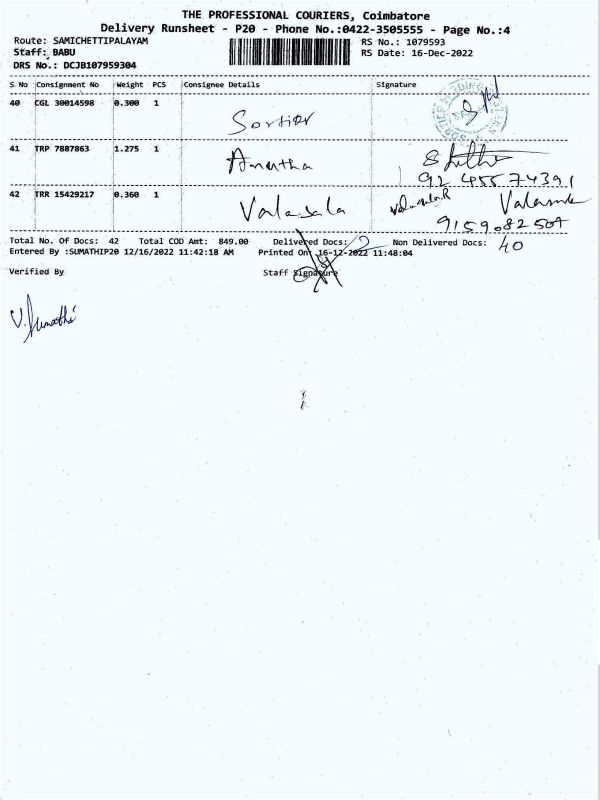 THE PROFESSIONAL COURIERS, Coimbatore
Delivery Runsheet - P20 - Phone No.:0422-3505555 - Page No.:4
Route: SAMICHETTIPALAYAM RS No.: 1079593
Staff: BABU RS Date: 16-Dec-2022
DRS No.: DCJB107959304
S.No Consignment No Weight PCS Consignee Details Signature
40 CGL 30014598 0.300 1
Sortier
41 TRP 7887863 1.275 1 Anartha
92 45574391
42 TRR 15429217 0.360 1 Valasala
9159082507
Total No. Of Docs: 42 Total COD Amt: 849.00 Delivered Docs: 2 Non Delivered Docs: 40
Entered By :SUMATHIP20 12/16/2022 11:42:18 AM Printed On 16-12-2022 11:48:04
Verified By Staff Signature